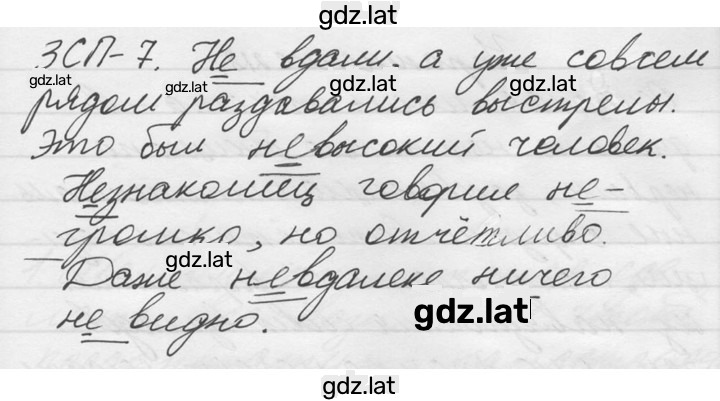 gdz.lat
ЗСП-7. Не вдали. а уже совсем
gdz.lat gdz.lat gdz.lat
рядом раздавались выстрелы.
Это был невысокий человек.
Незнакомец говорил не-
gdz.lat
громко, но отчётливо.
gdz.lat gdz.lat
Даже невдалеке ничего
не видно.
gdz.lat
gdz.lat